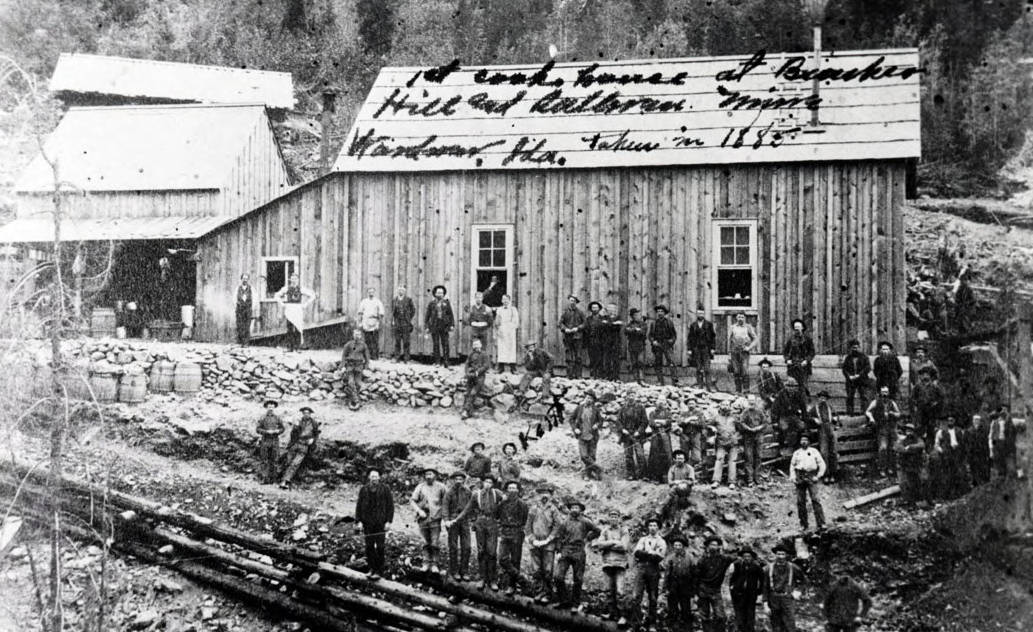 1st cook house at Bunker
Hill and Sullivan Mine
Wardner, Ida. taken in 1885